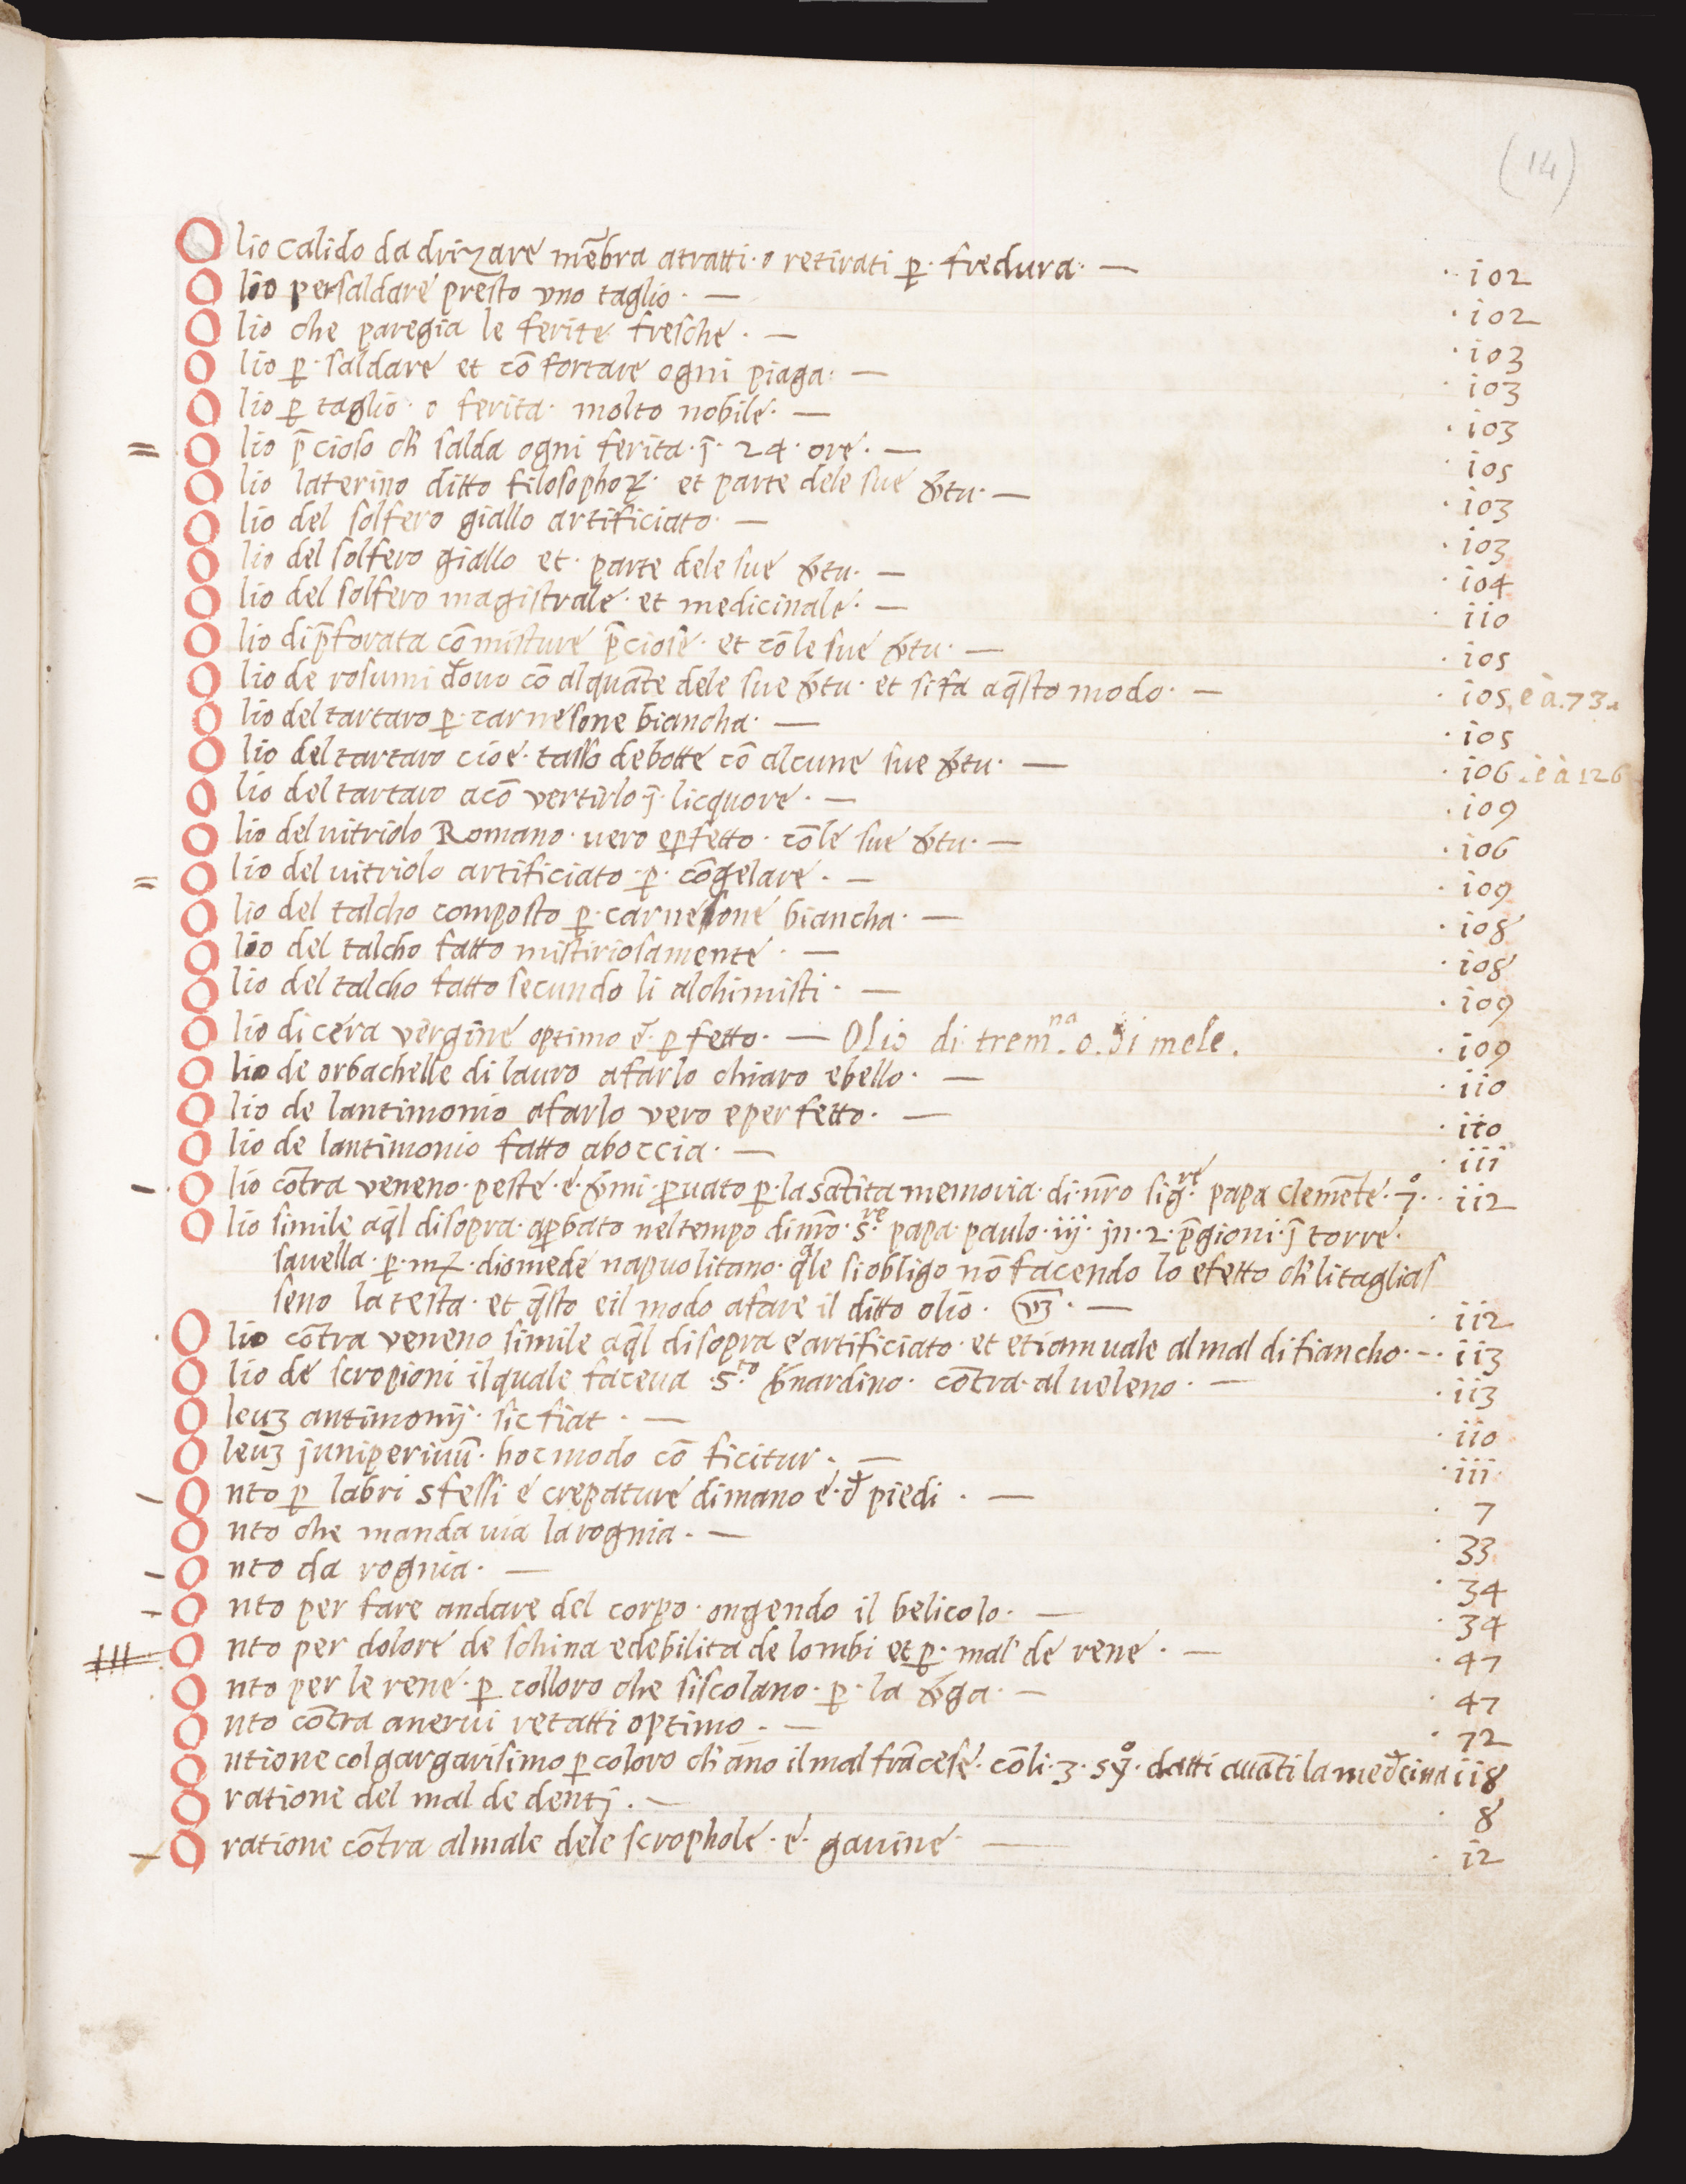 (14)
Olio calido da drizare mēbra atratti · o retirati ꝑ · fredura · — · i02
Olio per saldare presto vno taglio · — · i02
Olio che paregia le ferite fresche · — · i03
Olio ꝑ · saldare et cō fortare ogni piaga · — · i03
Olio ꝑ taglio · o ferita · molto nobile · — · i03
= Olio p̄cioso ch̄ salda ogni ferita · j̄ · 24 · ore · — · i05
Olio laterino ditto filosophoꝝ · et parte dele sue v̄tu · — · i03
Olio del solfero giallo artificiato · — · i03
Olio del solfero giallo et · parte dele sue v̄tu · — · i04
Olio del solfero magistrale · et medicinale · — · ii0
Olio di p̄forata cō misture p̄ciose · et cō le sue v̄tu · — · i05
Olio de rosumi d̄ouo cō alquāte dele sue v̄tu · et si fa aq̄sto modo · — · i05 e à . 73.
Olio del tartaro ꝑ · carnesone biancha · — · i05
Olio del tartaro cioe · tasso de botte cō alcune sue v̄tu · — · i06 . e à 126
Olio del tartaro acō vertirlo j̄ · licquore · — · i09
Olio del uitriolo Romano · uero eꝑfetto · cō le sue v̄tu · — · i06
= Olio del uitriolo artificiato · ꝑ · cōgelare · — · i09
Olio del talcho composto ꝑ · carnesone biancha · — · i08
Olio del talcho fatto mistiriosamente · — · i08
Olio del talcho fatto secundo li alchimisti · — · i09
Olio di cera vergine optimo e · ꝑ fetto · — Olio di trem.na o . di mele . · i09
Olio de orbachelle di lauro afarlo chiaro ebello · — · ii0
Olio de lantimonio afarlo vero eperfetto · — · ii0
Olio de lantimonio fatto aboccia · — · iii
– · Olio cōtra veneno · peste · e · v̄mi ꝓuato ꝑ · la sātita memoria · di · nr̄o sig.re papa clemēte · 7°· · ii2
Olio simile aq̄l disopra · aꝓbato nel tempo di nr̄o · s.re papa · paulo · iij · jn · 2 · p̄gioni · j̄ torre ·
sauella · ꝑ · mꝝ · diomede napuolitano · q̄le si obligo nō facendo lo efetto ch̄ li taglias
seno la testa · et q̄sto e il modo afare il ditto olio · vʒ · — · ii2
Olio cōtra veneno simile aq̄l disopra e artificiato · et etiam uale al mal di fiancho · – · ii3
Olio de scropioni il quale faceua · s.to b̄nardino · cōtra · al ueleno · — · ii3
Oleuʒ antimonij · sic fiat · — · ii0
Oleuʒ juniperinū · hoc modo cō ficitur · — · iii
– Onto ꝑ labri sfessi e crepature di mano e · d̄ piedi · — · 7
Onto che manda uia la rognia · — · 33
– Onto da rognia · — · 34
– Onto per fare andare del corpo · ongendo il belicolo · — · 34
Onto per dolore de schina e debilita de lombi et ꝑ · mal de rene · — · 47
Onto per le rene · ꝑ colloro che si scolano · ꝑ · la v̄ga · — · 47
Onto cōtra a nerui retatti optimo · — · 72
Ontione col gargarisimo ꝑ coloro ch̄ āno il mal frācese · cō li · 3 · sy° · datti auāti la med̄cina ii8
Oratione del mal de dentj · — · 8
– Oratione cōtra al male dele scrophole · e · gauine · — · i2